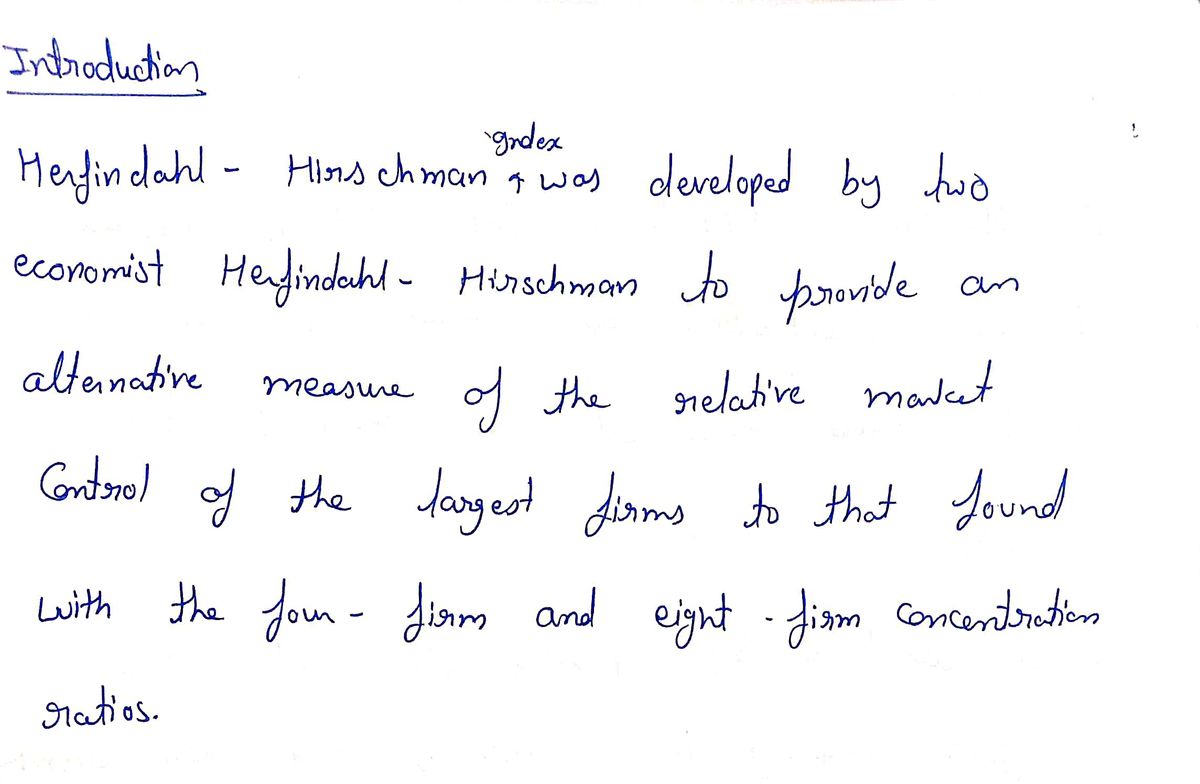 Introduction
Herfindahl - Hirschman Index was developed by two
economist Herfindahl - Hirschman to provide an
alternative measure of the relative market
Control of the largest firms to that found
with the four - firm and eight - firm concentration
ratios.